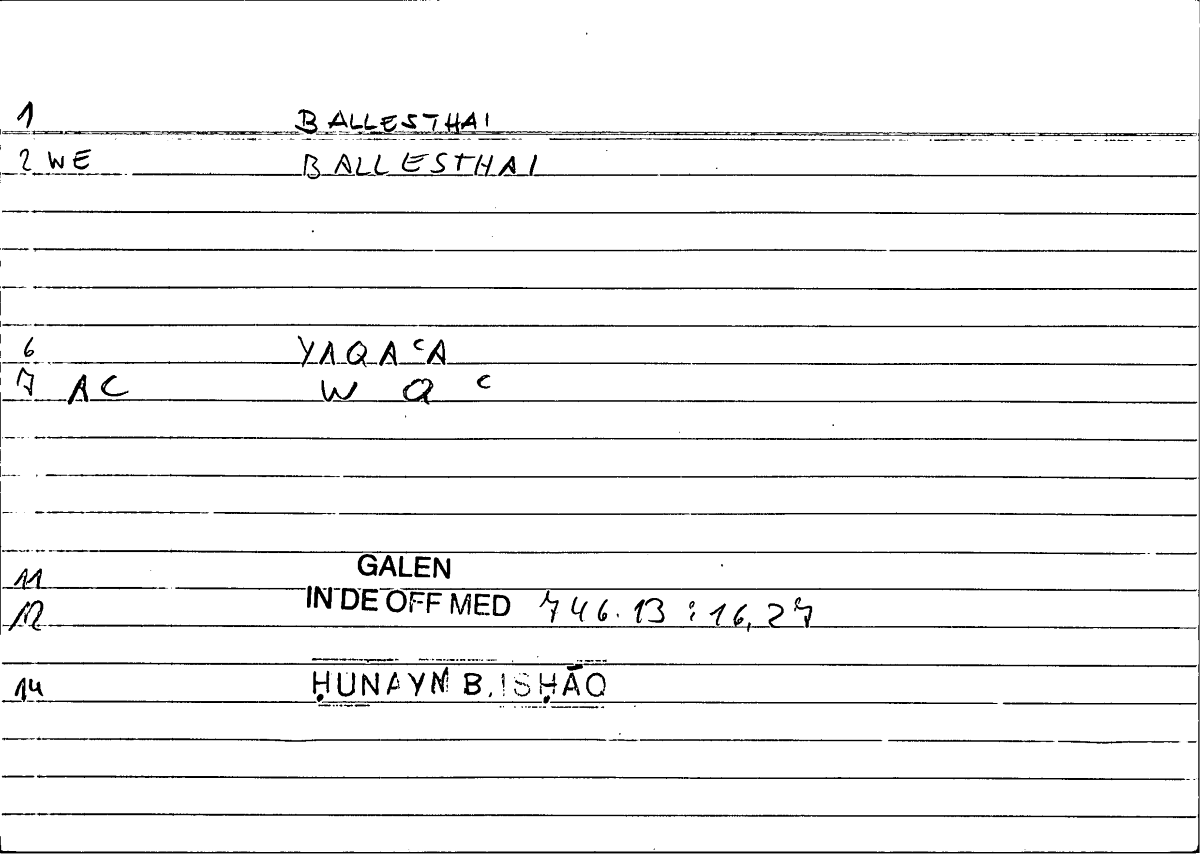 1 BALLESTHAI
2 WE BALLESTHAI
6 YAQAᶜA
7 AC W Q ᶜ
11 GALEN
12 IN DE OFF MED 746.13 : 16,27
14 ḤUNAYN B. ISḤĀQ